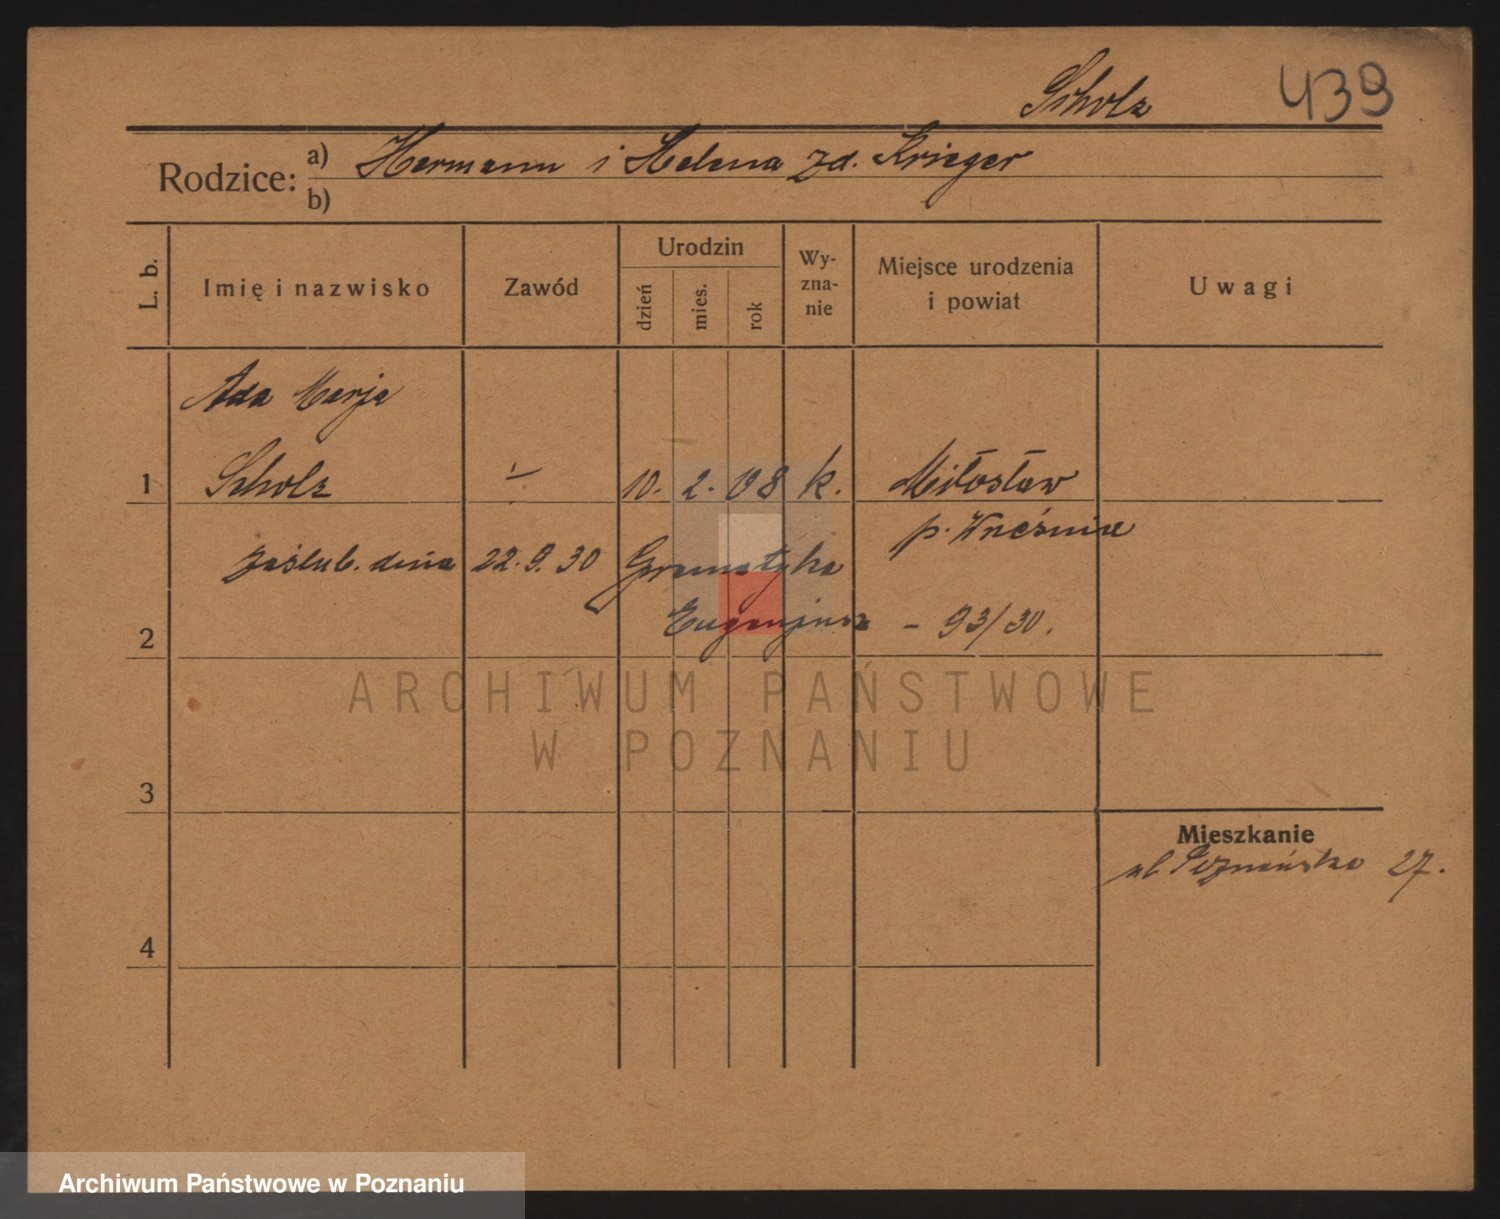 Scholz 439
Rodzice: a) Hermann i Helena zd. Krieger
b)
L. b.
Imię i nazwisko
Zawód
Urodzin
dzień
mies.
rok
Wy-
zna-
nie
Miejsce urodzenia
i powiat
Uwagi
Ada Marja
1 Scholz ÷ 10. 2. 08 k. Miłosław
p. Września
zaślub. dnia 22. 9. 30 Gramatyka
2 Eugenjusz - 93/30.
ARCHIWUM PAŃSTWOWE
W POZNANIU
3
Mieszkanie
ul. Poznańska 27.
4
Archiwum Państwowe w Poznaniu